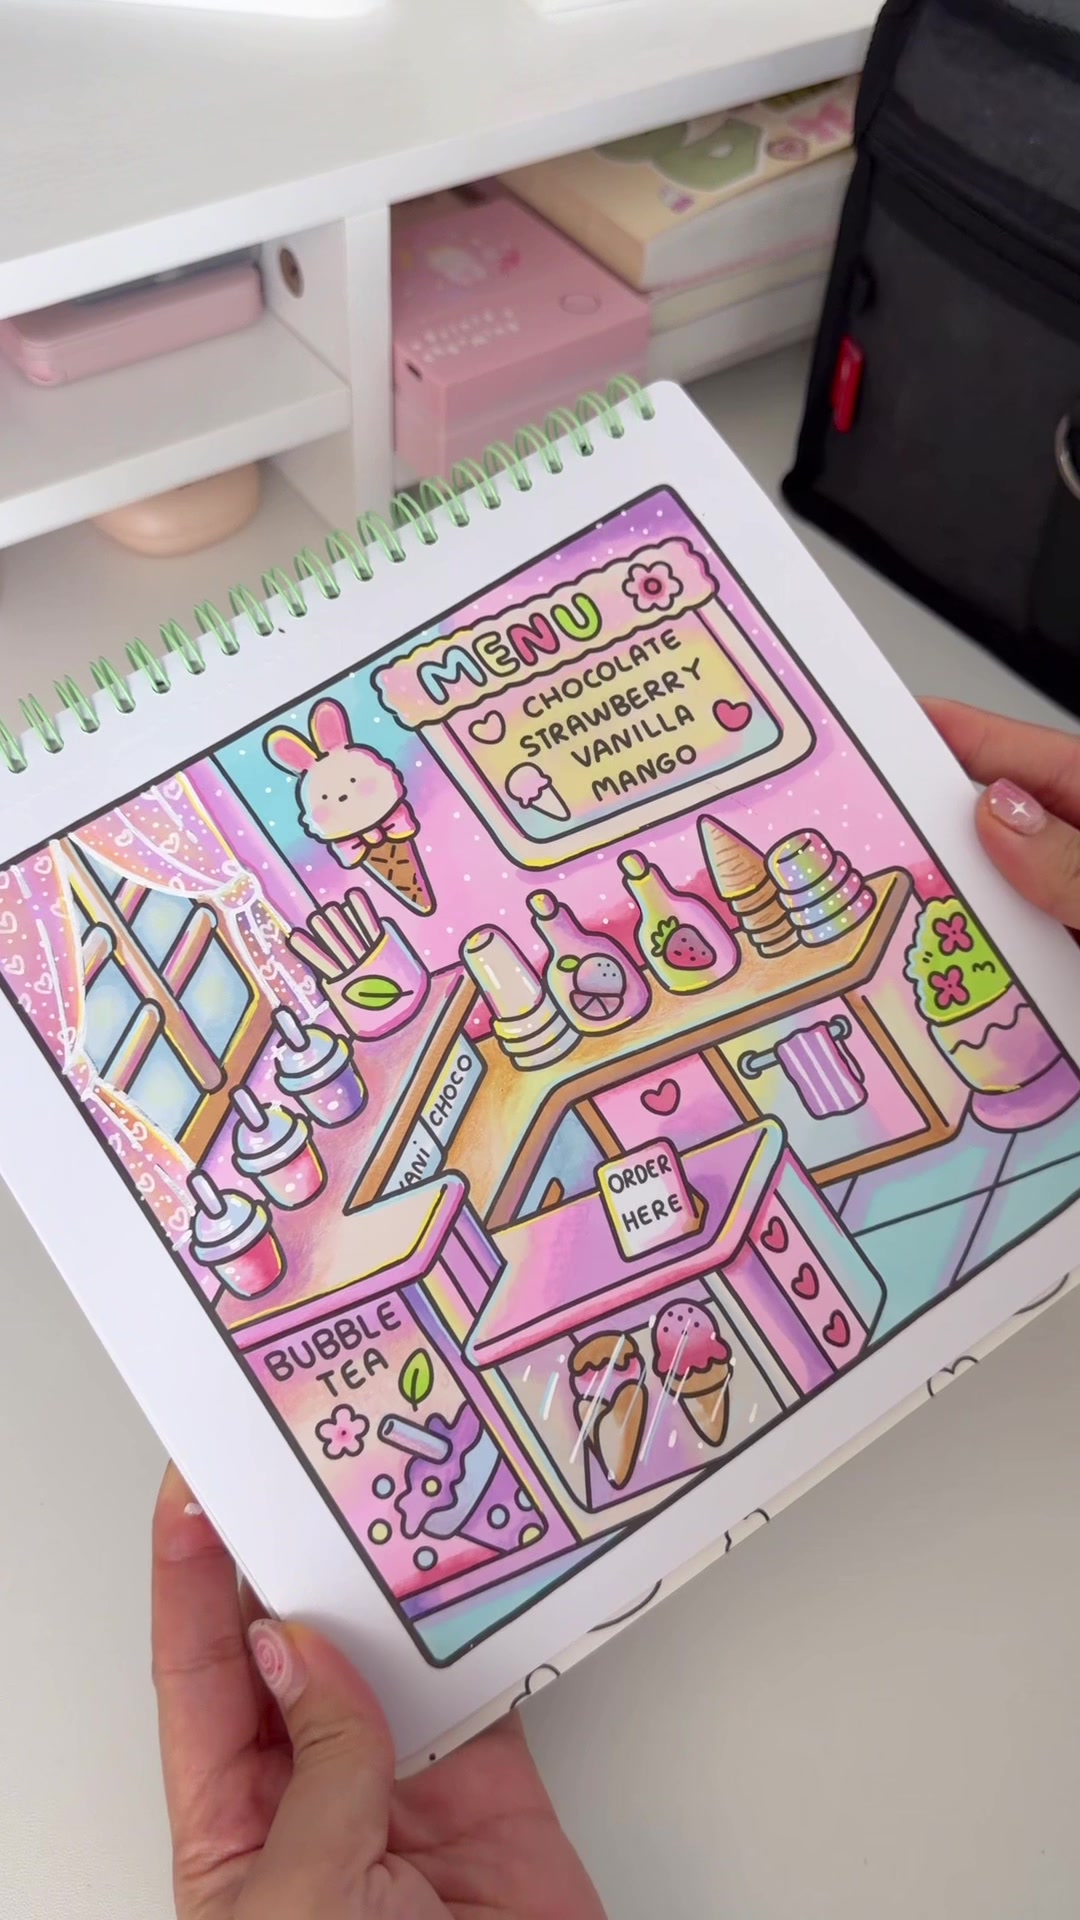 MENU
CHOCOLATE
STRAWBERRY
VANILLA
MANGO
CHOCO
VANI
ORDER
HERE
BUBBLE
TEA